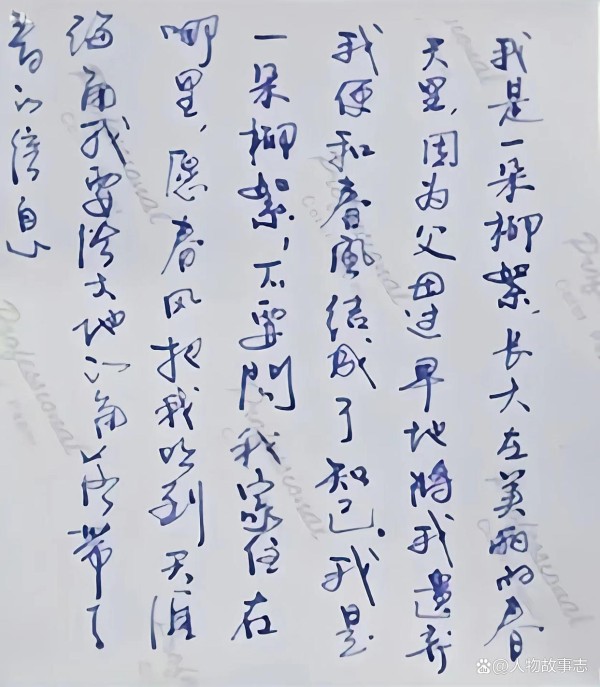 我是一朵柳絮,长大在美丽的春
天里,因为父母过早地将我遗弃
我便和春風结成了知己。我是
一朵柳絮,不要問我家住在
哪里,愿春风把我吹到天涯
海角我要给大地的角落带了
春的信息
Professional
Professional
Professional
Professional
@人物故事志